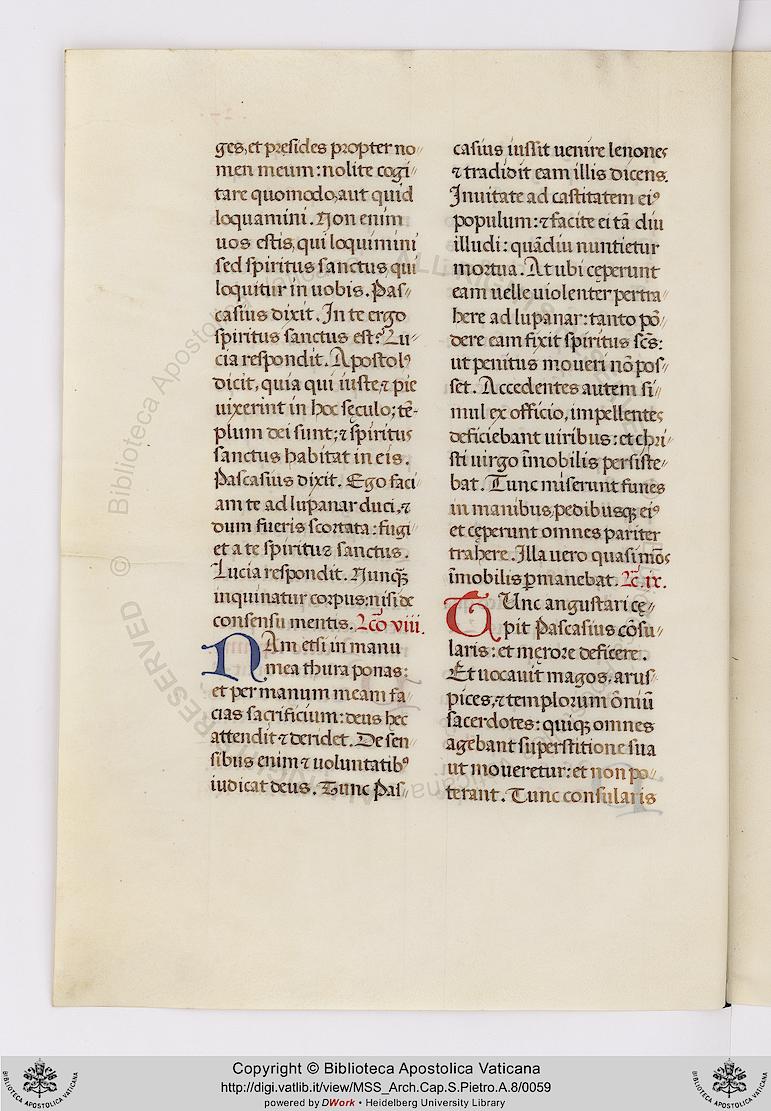 ges, et pręsides propter no
men meum: nolite cogi
tare quomodo, aut quid
loquamini. Non enim
uos estis, qui loquimini
sed spiritus sanctus, qui
loquitur in uobis. Pas
casius dixit. In te ergo
spiritus sanctus est? Lu
cia respondit. Apostolꝰ
dicit, quia qui iuste, ⁊ pie
uixerint in hoc sęculo; tē
plum dei sunt; ⁊ spiritus
sanctus habitat in eis.
Pascasius dixit. Ego faci
am te ad lupanar duci, ⁊
dum fueris scortata: fugi
et a te spiritus sanctus.
Lucia respondit. Nunqꝫ̃
inquinatur corpus: nisi de
consensu mentis. Lc̄o viii.
NAm etsi in manu
mea thura ponas:
et per manum meam fa
cias sacrificium: deus hec
attendit ⁊ deridet. De sen
sibus enim ⁊ uoluntatibꝰ
iudicat deus. Tunc Pas
casius iussit uenire lenones
⁊ tradidit eam illis dicens.
Inuitate ad castitatem eiꝰ
populum: ⁊ facite ei tā diu
illudi: quādiu nuntietur
mortua. At ubi cęperunt
eam uelle uiolenter pertra
here ad lupanar: tanto pō
dere eam fixit spiritus sc̄s:
ut penitus moueri nō pos
set. Accedentes autem si
mul ex officio, impellentes
deficiebant uiribus: et chri
sti uirgo īmobilis persiste
bat. Tunc miserunt funes
in manibus, pedibusqꝫ eiꝰ
et cęperunt omnes pariter
trahere. Illa uero quasi mōs
īmobilis ꝑmanebat. Lc̄. ix.
TUnc angustari cę
pit Pascasius cōsu
laris: et męrore deficere.
Et uocauit magos, arus
pices, ⁊ templorum ōniū
sacerdotes: quiqꝫ omnes
agebant superstitione sua
ut moueretur: et non po
terant. Tunc consularis
Copyright © Biblioteca Apostolica Vaticana
http://digi.vatlib.it/view/MSS_Arch.Cap.S.Pietro.A.8/0059
powered by DWork • Heidelberg University Library
BIBLIOTECA APOSTOLICA VATICANA
BIBLIOTECA APOSTOLICA VATICANA